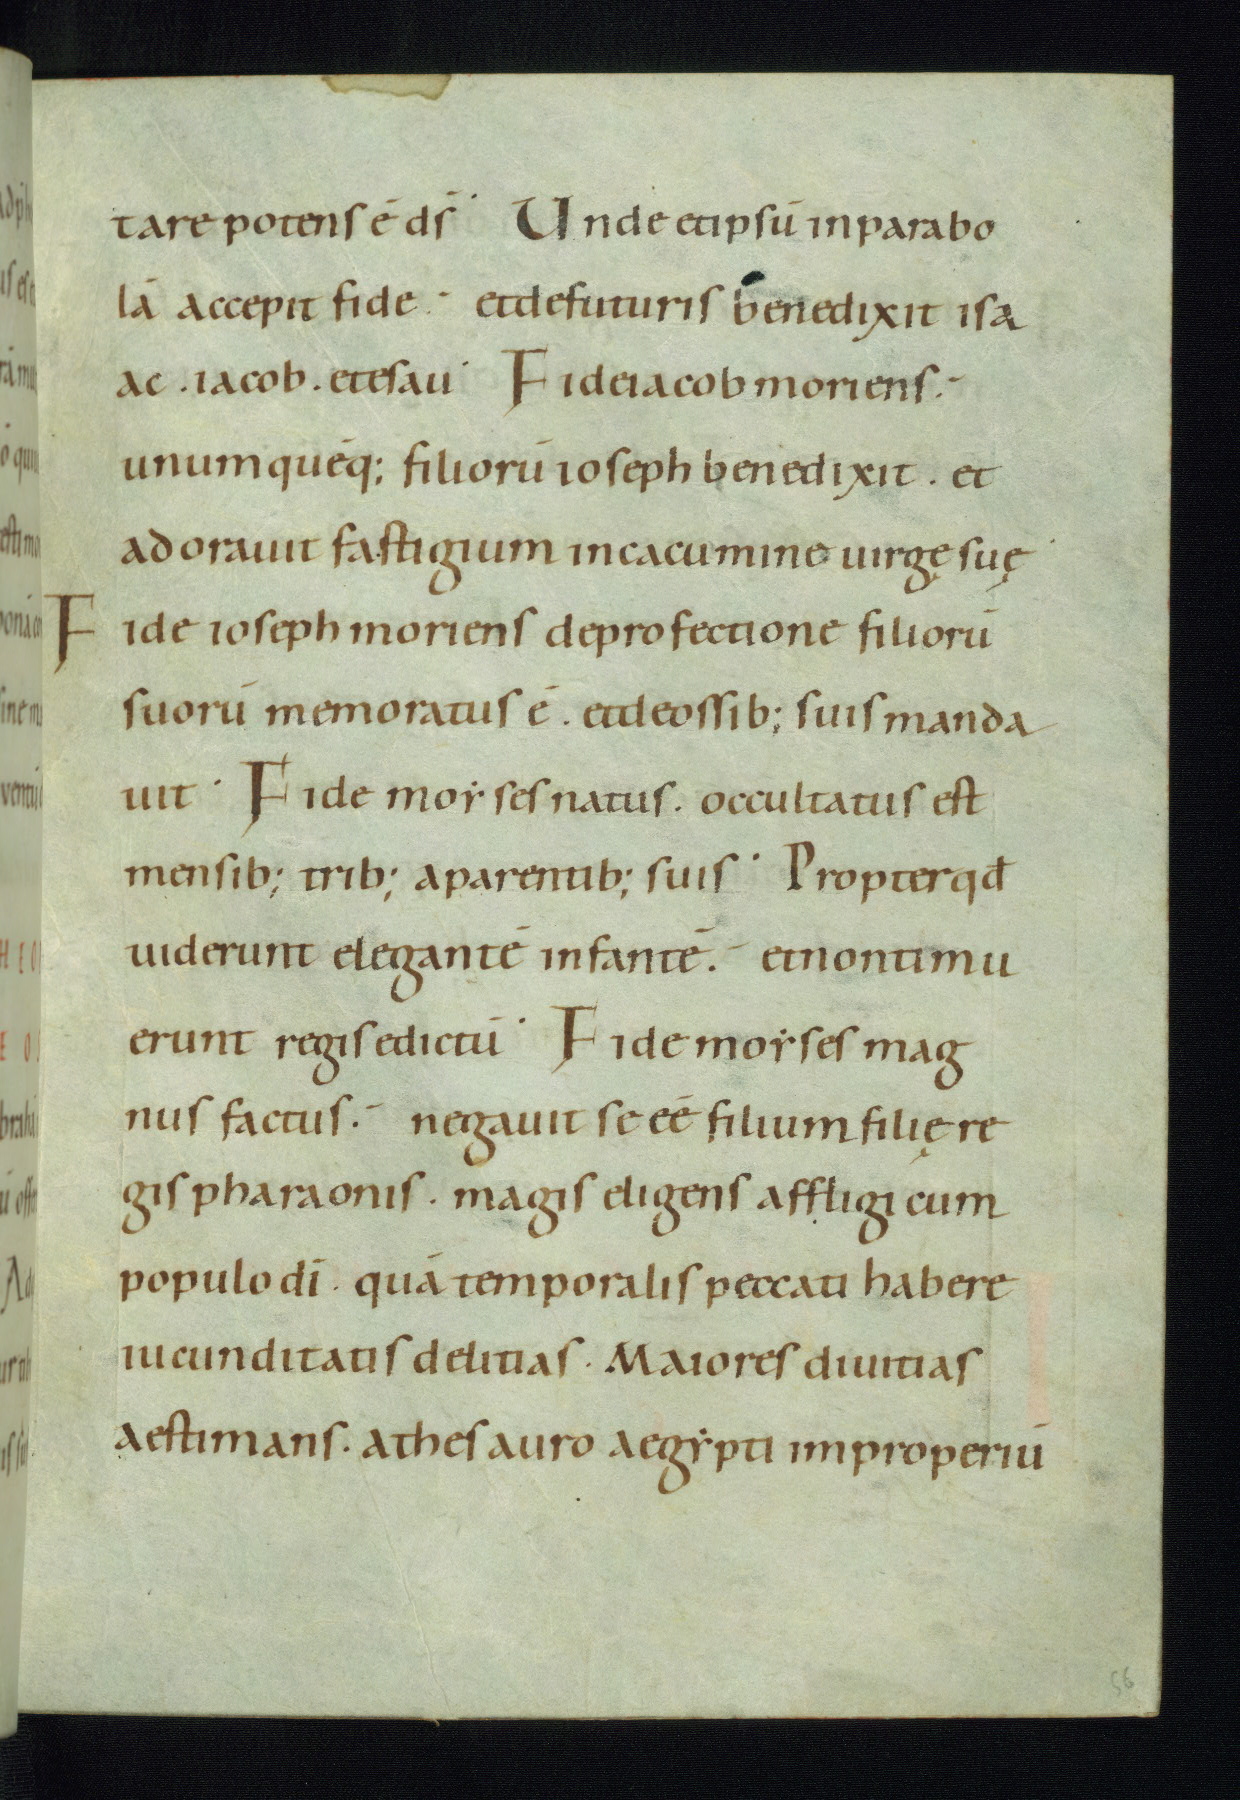 tare potens ē ds̄ Unde et ipsū in parabo
lā accepit fide .- et de futuris benedixit isa
ac . iacob . et esau Fide iacob moriens .-
unumquēq; filiorū ioseph benedixit . et
adorauit fastigium in cacumine uirgę suę
Fide ioseph moriens de profectione filiorū
suorū memoratus ē . et de ossib; suis manda
uit Fide moẏses natus . occultatus est
mensib; trib; a parentib; suis Propter qđ
uiderunt elegantē infantē .- et non timu
erunt regis edictū Fide moẏses mag
nus factus .- negauit se eē filium filię re
gis pharaonis . magis eligens affligi cum
populo dī . quā temporalis peccati habere
iucunditatis delitias . Maiores diuitias
aestimans . a thesauro aegẏpti improperiū
56